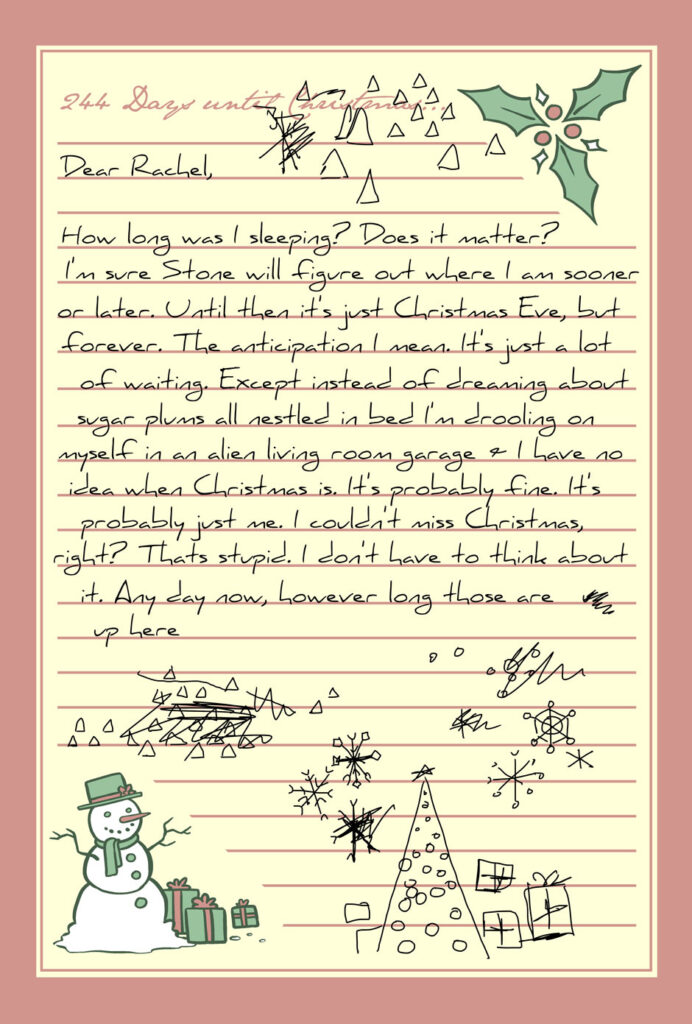 244 Days until Christmas...
Dear Rachel,
How long was I sleeping? Does it matter?
I'm sure Stone will figure out where I am sooner
or later. Until then it's just Christmas Eve, but
forever. The anticipation I mean. It's just a lot
of waiting. Except instead of dreaming about
sugar plums all nestled in bed I'm drooling on
myself in an alien living room garage & I have no
idea when Christmas is. It's probably fine. It's
probably just me. I couldn't miss Christmas,
right? Thats stupid. I don't have to think about
it. Any day now, however long those are
up here